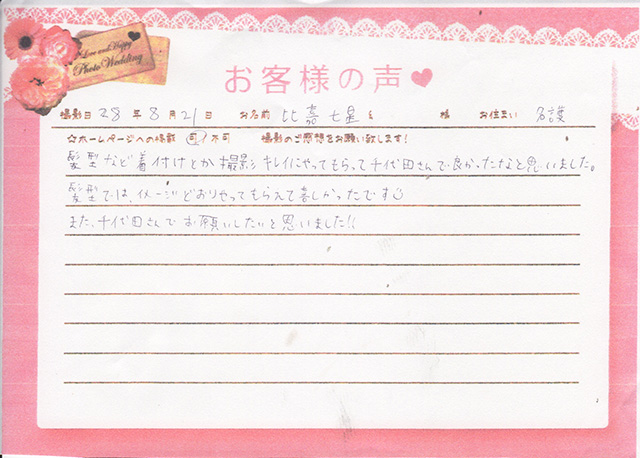 Love and Happy
Photo Wedding
お客様の声♥
撮影日 28 年 8 月 21 日 お名前 比嘉 七星 様 お住まい 名護
☆ホームページへの掲載 可・不可 撮影のご感想をお願い致します!
髪型など着付けとか撮影キレイにやってもらって千代田さんで良かったなと思いました。
髪型では、イメージどおりやってもらえて喜しかったです☺
また、千代田さんでお願いしたいと思いました!!